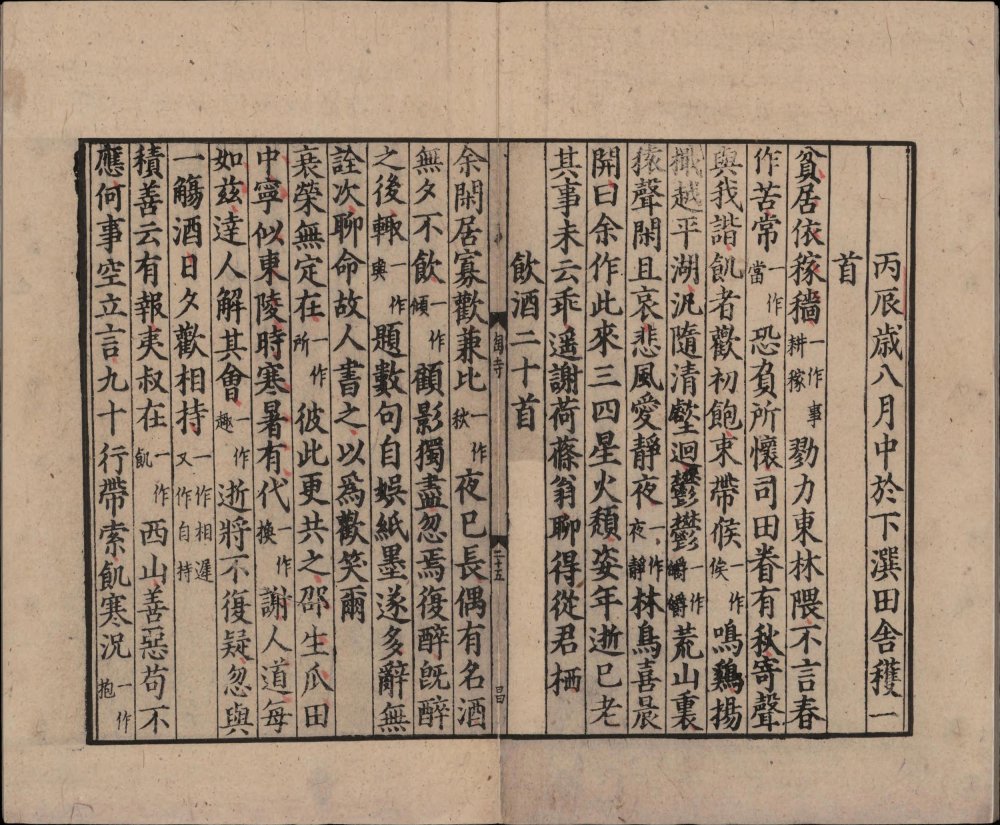 丙辰歲八月中於下潠田舍穫一
首
貧居依稼穡一作事耕稼勠力東林隈不言春
作苦常一作當恐負所懷司田眷有秋寄聲
與我諧飢者歡初飽束帶候一作俟鳴鷄揚
檝越平湖汎隨清壑迴鬱鬱一作皭皭荒山裏
猿聲閑且哀悲風愛靜夜一作夜靜林鳥喜晨
開曰余作此來三四星火頹姿年逝已老
其事未云乖遥謝荷蓧翁聊得從君栖
飲酒二十首
陶寺
二十五
昌
余閑居寡歡兼比一作秋夜已長偶有名酒
無夕不飲一作傾顧影獨盡忽焉復醉旣醉
之後輒一作與題數句自娛紙墨遂多辭無
詮次聊命故人書之以爲歡笑爾
衰榮無定在一作所彼此更共之邵生瓜田
中寧似東陵時寒暑有代一作換謝人道每
如兹達人解其會一作趣逝將不復疑忽與
一觴酒日夕歡相持一作相遲又作自持
積善云有報夷叔在一作飢西山善惡苟不
應何事空立言九十行帶索飢寒况一作抱